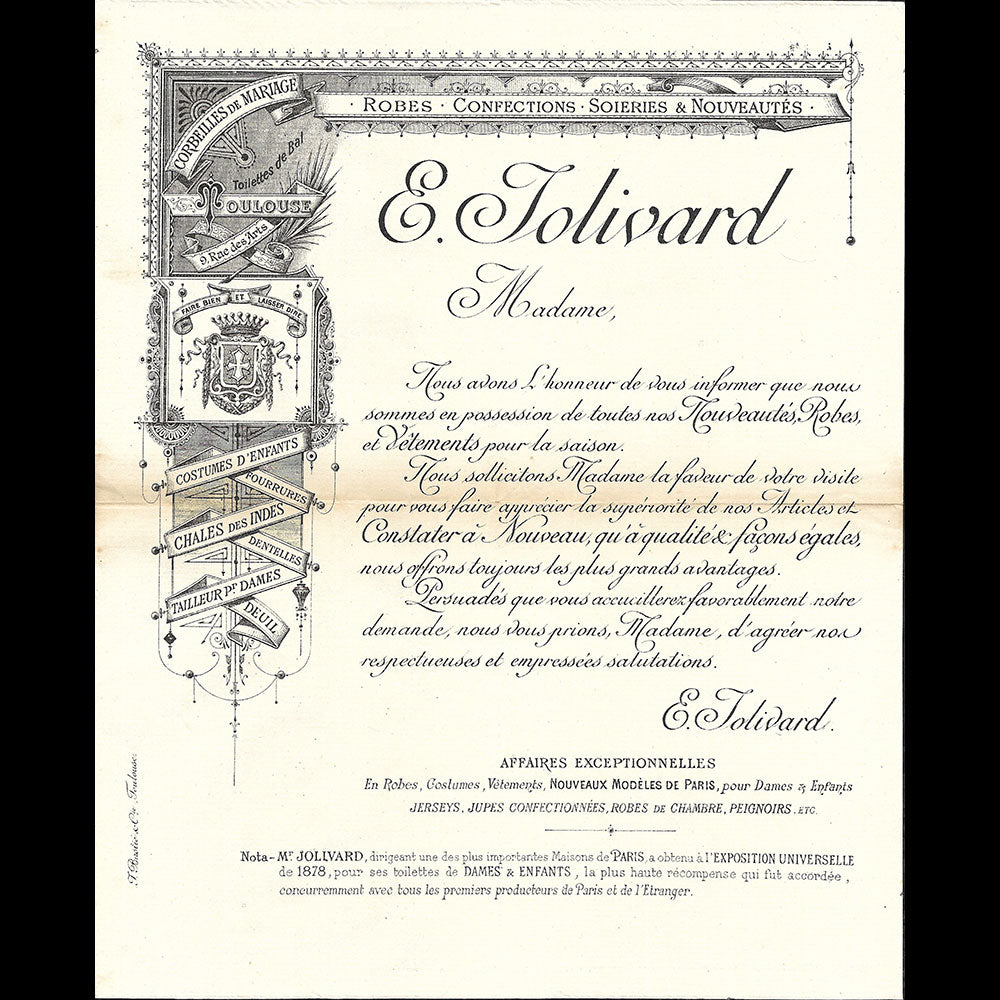 CORBEILLES DE MARIAGE
· ROBES · CONFECTIONS · SOIERIES & NOUVEAUTÉS ·
Toilettes de Bal
TOULOUSE
9, Rue des Arts
FAIRE BIEN ET LAISSER DIRE
COSTUMES D'ENFANTS
FOURRURES
CHALES DES INDES
DENTELLES
TAILLEUR Pr. DAMES
DEUIL
E. Jolivard
Madame,
Nous avons L'honneur de vous informer que nous
sommes en possession de toutes nos Nouveautés, Robes,
et Vêtements pour la saison.
Nous sollicitons Madame la faveur de votre visite
pour vous faire apprécier la supériorité de nos Articles et
Constater à Nouveau, qu'à qualité & façons égales,
nous offrons toujours les plus grands avantages.
Persuadés que vous accueillerez favorablement notre
demande, nous vous prions, Madame, d'agréer nos
respectueuses et empressées salutations.
E. Jolivard.
AFFAIRES EXCEPTIONNELLES
En Robes, Costumes, Vêtements, NOUVEAUX MODÈLES DE PARIS, pour Dames & Enfants
JERSEYS, JUPES CONFECTIONNÉES, ROBES DE CHAMBRE, PEIGNOIRS, ETC.
Nota - Mr. JOLIVARD, dirigeant une des plus importantes Maisons de PARIS, a obtenu à l'EXPOSITION UNIVERSELLE
de 1878, pour ses toilettes de DAMES & ENFANTS, la plus haute récompense qui fut accordée,
concurremment avec tous les premiers producteurs de Paris et de l'Etranger.
& Cie Toulouse.